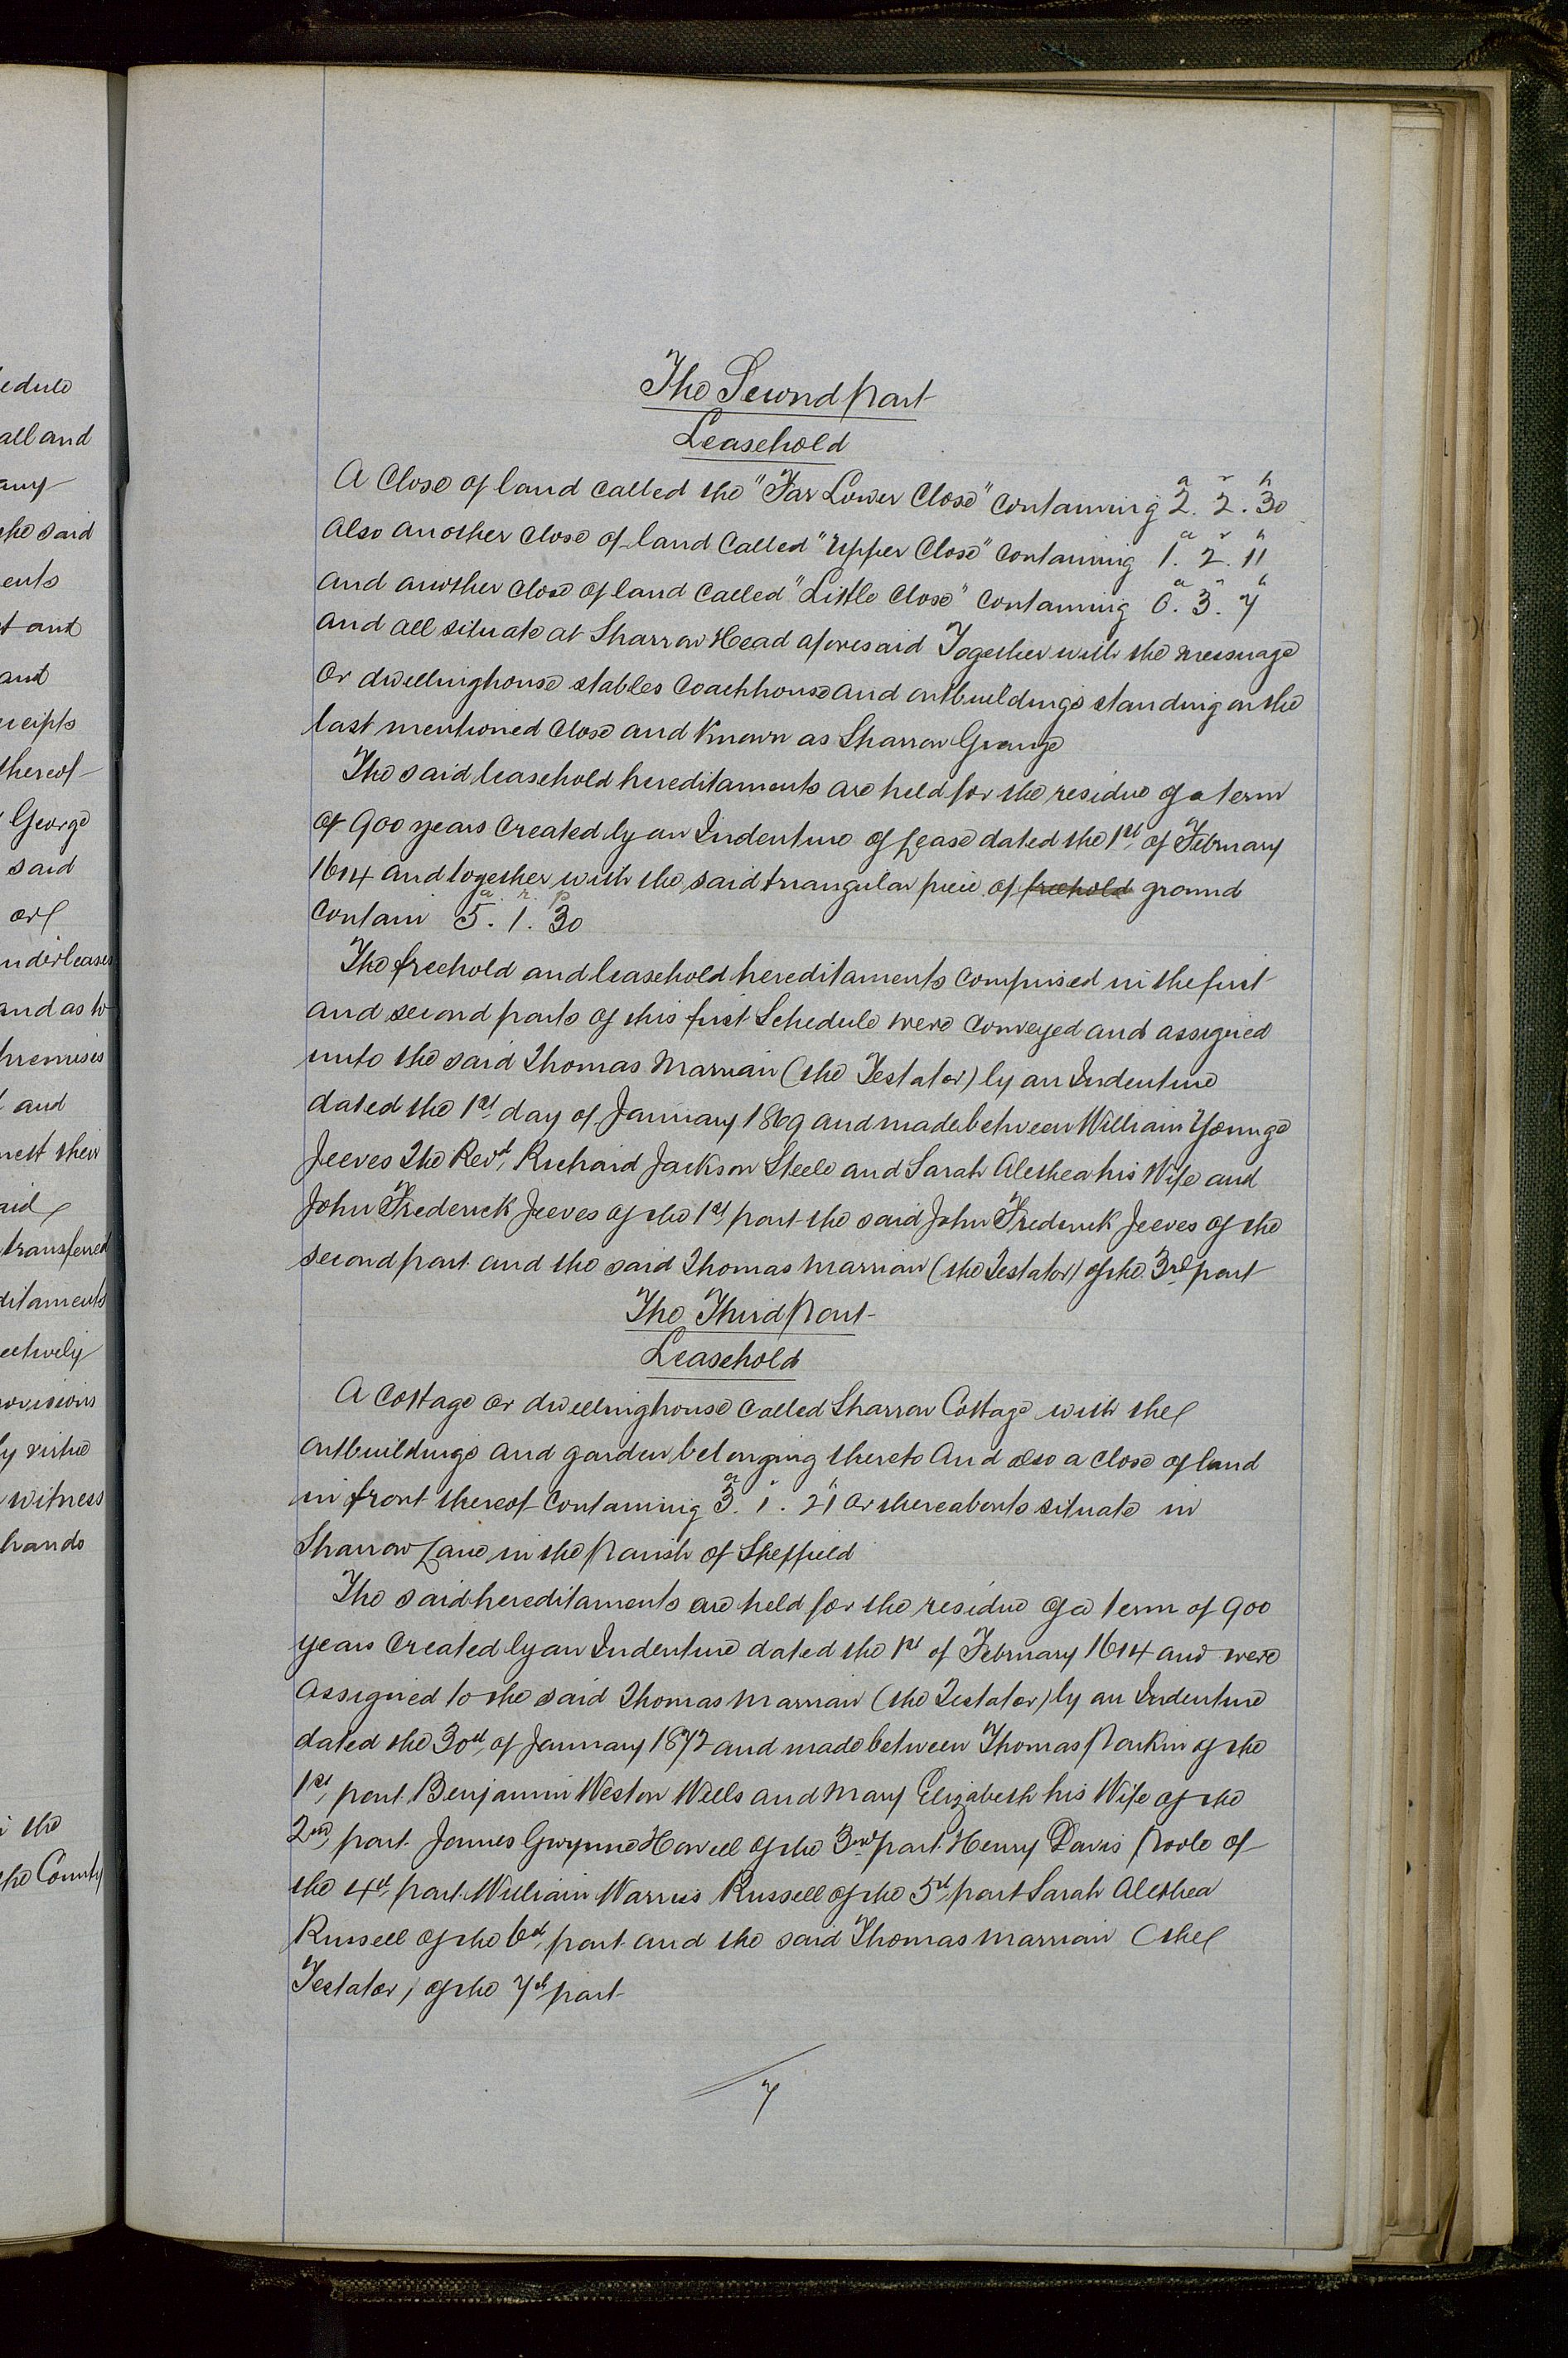 edule
all and
any
the said
ents
t and
and
ceipts
thereof
George
said
or
nderleases
and as to
premises
and
nest their
aid
transferred
ditaments
ectively
ovisions
by virtue
witness
hands
the
the County
The Second part
Leasehold
A Close of land called the "Far Lower Close" containing 2a. 2r. 30p
also another close of land called "Upper Close" containing 1a. 2r. 11p
and another close of land called "Little Close" containing 0a. 3r. 7p
and all situate at Sharrow Head aforesaid Together with the messuage
or dwellinghouse stables coachhouse and outbuildings standing on the
last mentioned close and known as Sharrow Grange
The said leasehold hereditaments are held for the residue of a term
of 900 years created by an Indenture of Lease dated the 1st of February
1614 and together with the said triangular piece of freehold ground
contain 5a. 1r. 30p
The freehold and leasehold hereditaments comprised in the first
and second parts of this first Schedule were conveyed and assigned
unto the said Thomas Marrian (the Testator) by an Indenture
dated the 1st day of January 1869 and made between William Younge
Jeeves The Revd. Richard Jackson Steele and Sarah Alethea his Wife and
John Frederick Jeeves of the 1st part the said John Frederick Jeeves of the
second part and the said Thomas Marrian (the Testator) of the 3rd part
The Third Part
Leasehold
A Cottage or dwellinghouse called Sharrow Cottage with the
outbuildings and garden belonging thereto And also a close of land
in front thereof containing 3a. 1r. 21p or thereabouts situate in
Sharrow Lane in the Parish of Sheffield
The said hereditaments are held for the residue of a term of 900
years created by an Indenture dated the 1st of February 1614 and were
assigned to the said Thomas Marrian (the Testator) by an Indenture
dated the 30th of January 1872 and made between Thomas Parkin of the
1st part Benjamin Weston Wells and Mary Elizabeth his Wife of the
2nd part James Gwynne Howell of the 3rd part Henry Davis Poole of
the 4th part William Warris Russell of the 5th part Sarah Alethea
Russell of the 6th part and the said Thomas Marrian (the
Testator) of the 7th part
7